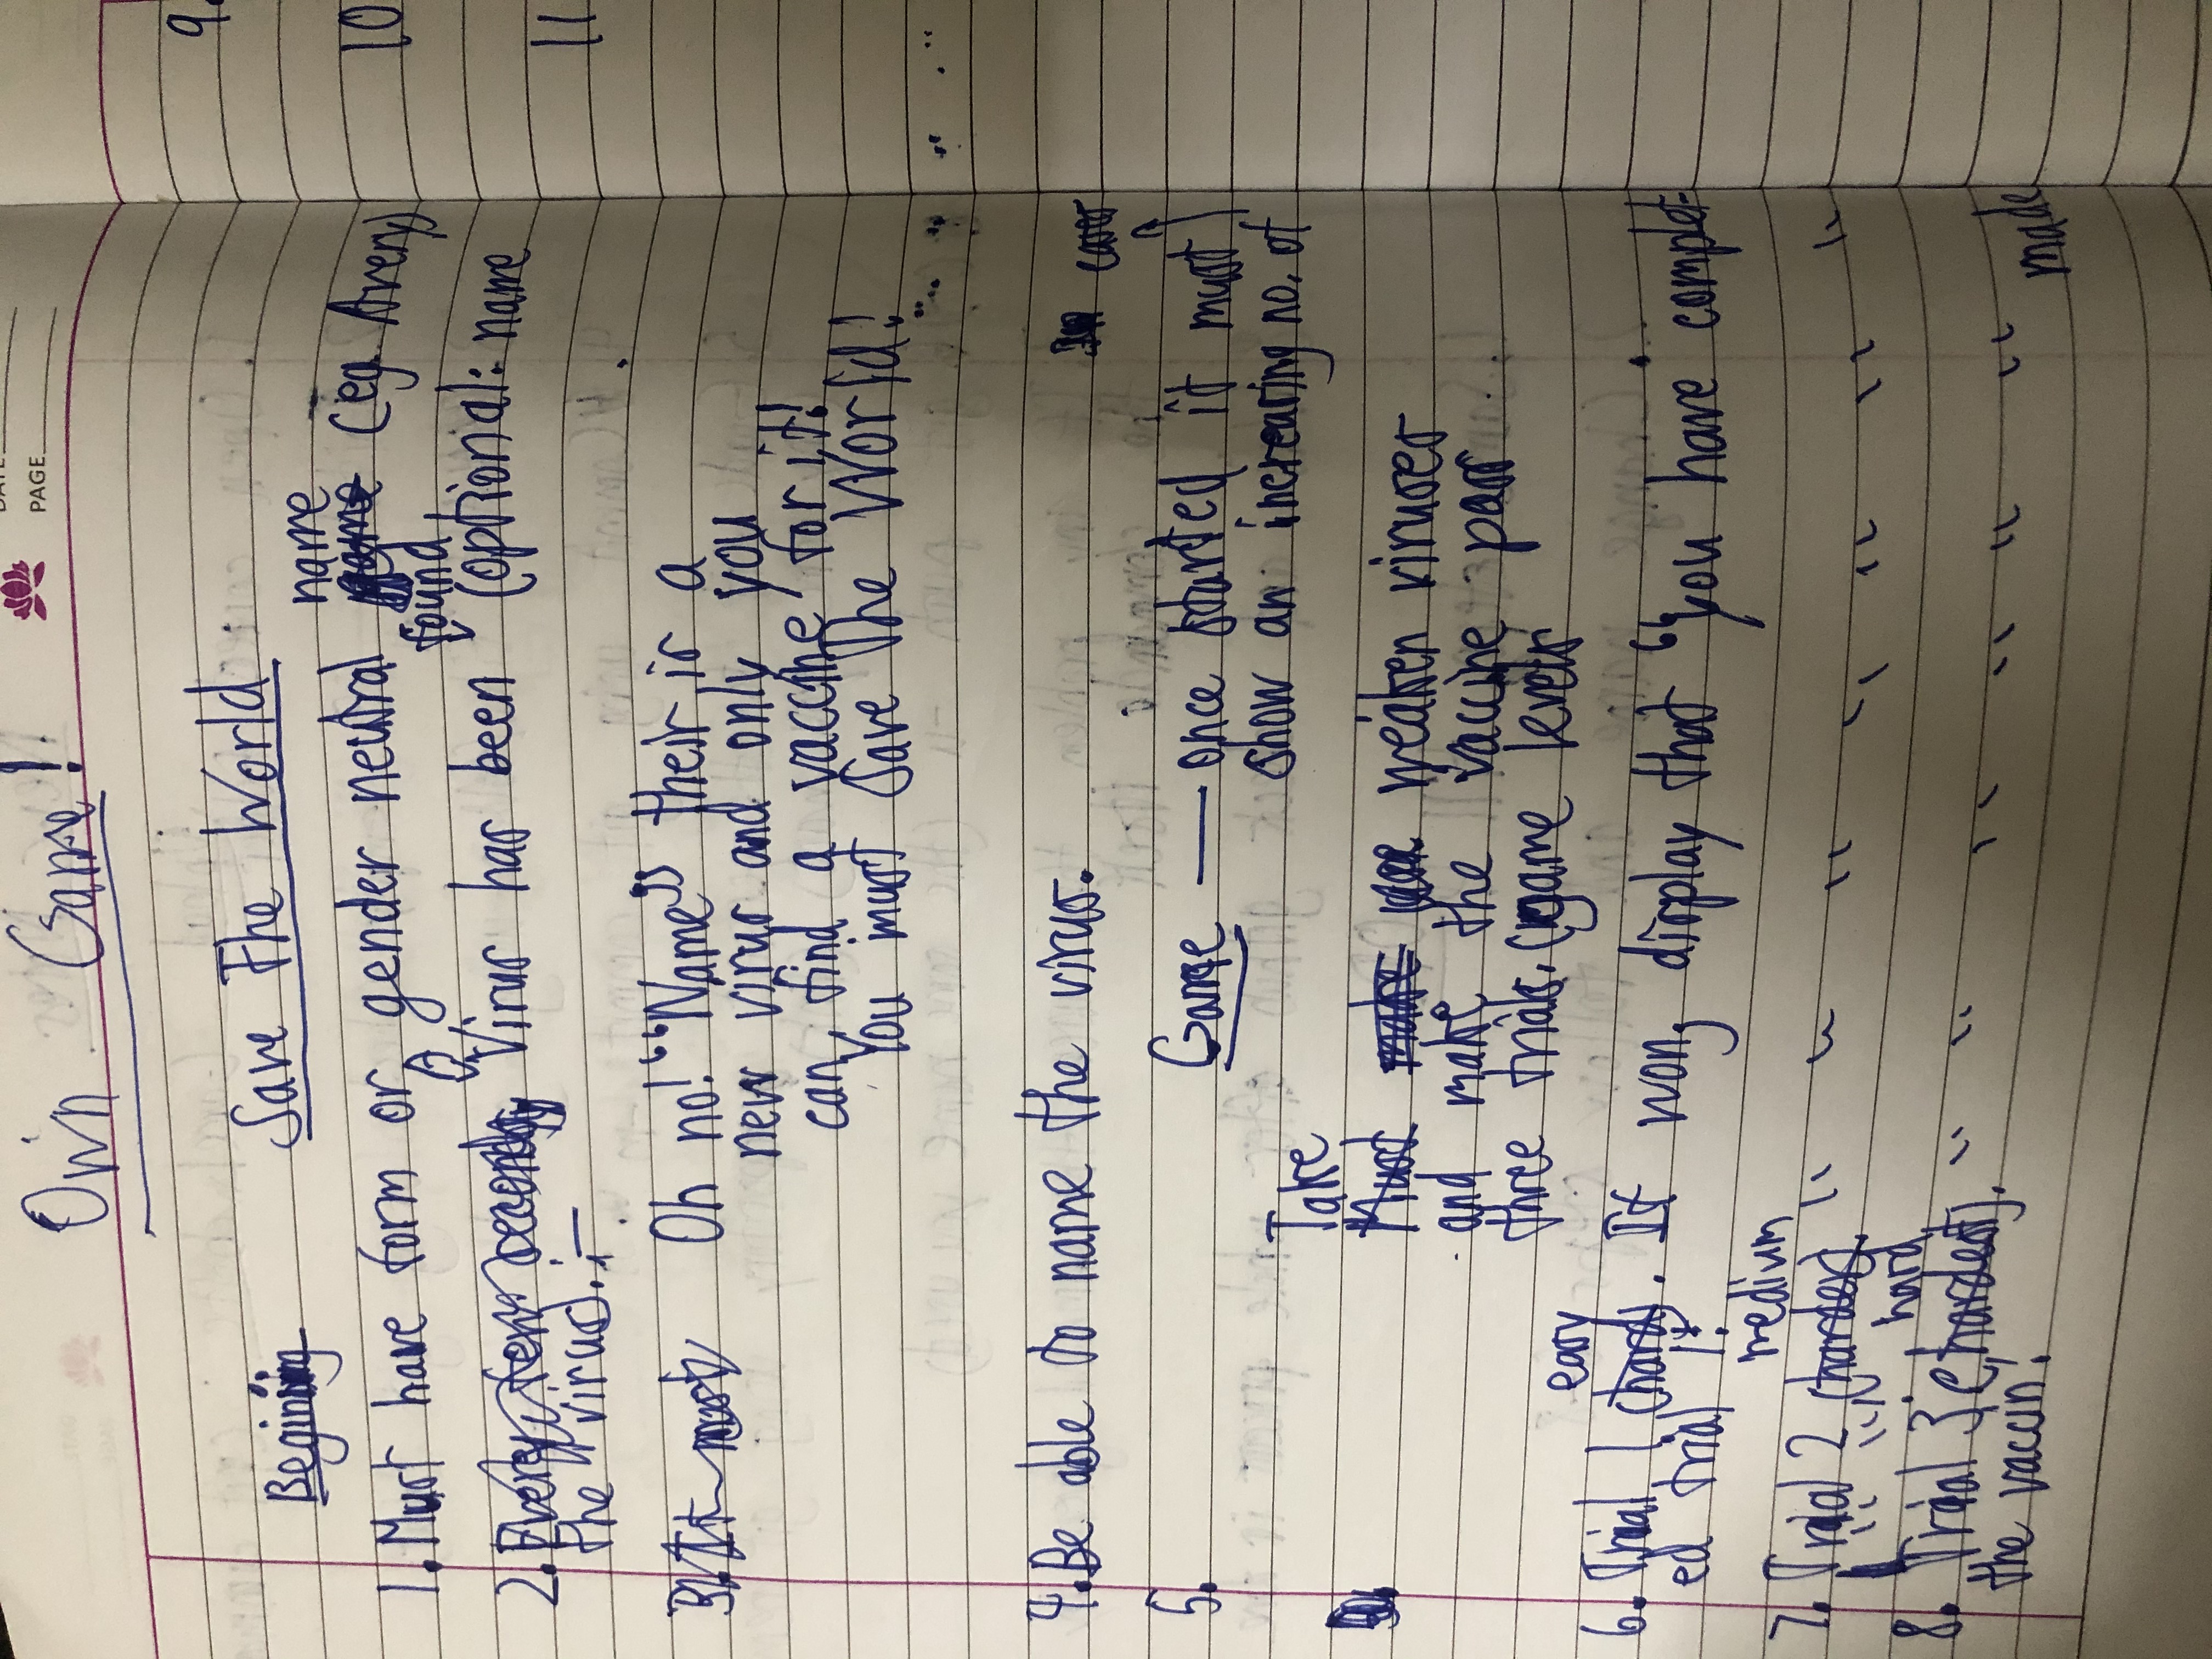 DATE
PAGE
Own Game!
Save The World
Begining
name
1. Must have form or gender neutral game (eg. Avery)
found
2. Every few seconds Virus has been (optional: name
the virus). :—
3. It must Oh no! "Name" their is a
new virus and only you
can find a vaccine for it!
You must Save The World!
4. Be able to name the virus.
cases
5. Game — once started it must
show an increasing no. of
Take
Must make weaken viruses
and make the vaccine pass
three trials. (game levels
easy
6. Trial 1 (hard). If won, display that "you have complet-
ed trial 1!
medium
7. Trial 2 (harder). " " " " " " "
" "
hard
8. Trial 3 (hardest). " " " " " " made
the vaccin!
9.
10
11